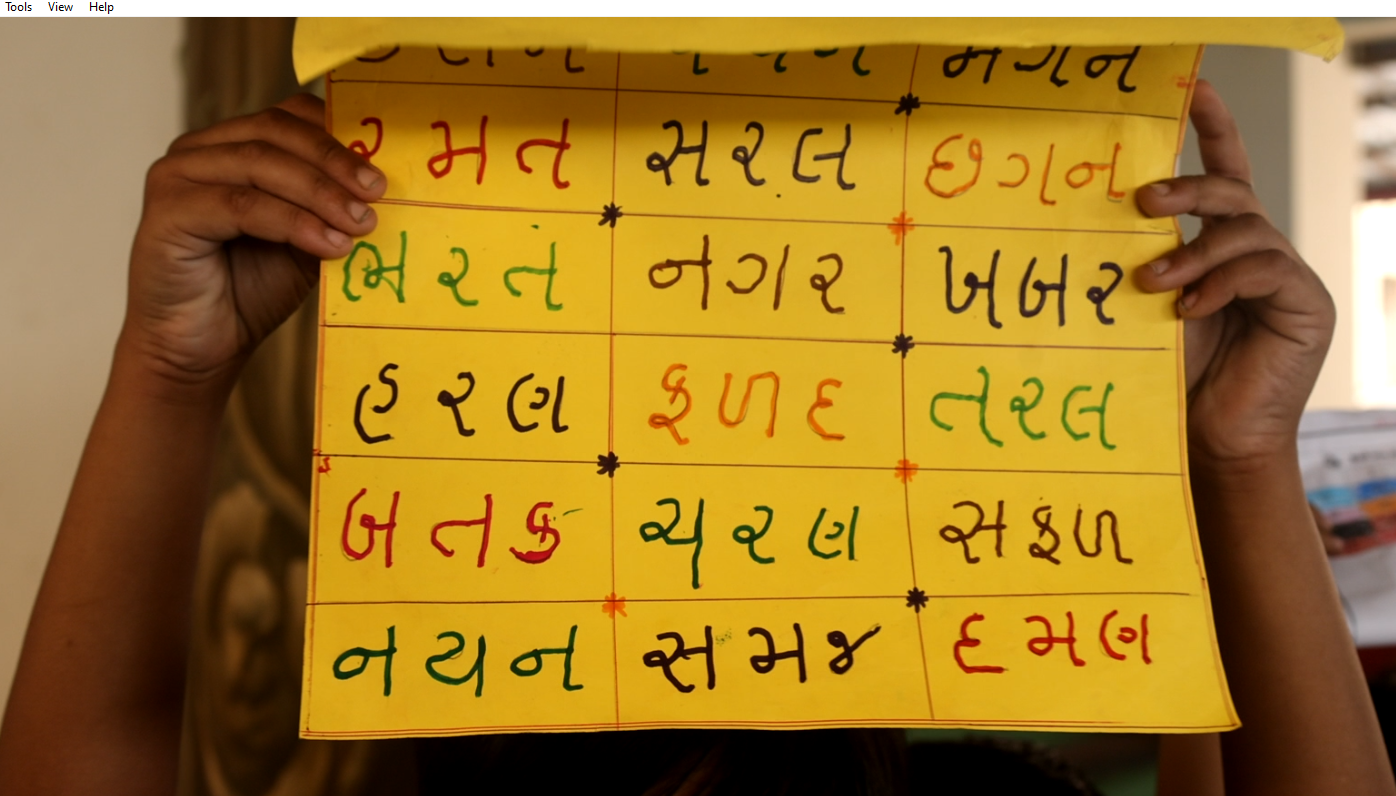 Tools View Help
મગન
રમત સરલ છગન
ભરત નગર ખબર
હરણ ફળદ તરલ
બતક ચરણ સફળ
નયન સમજ દમણ